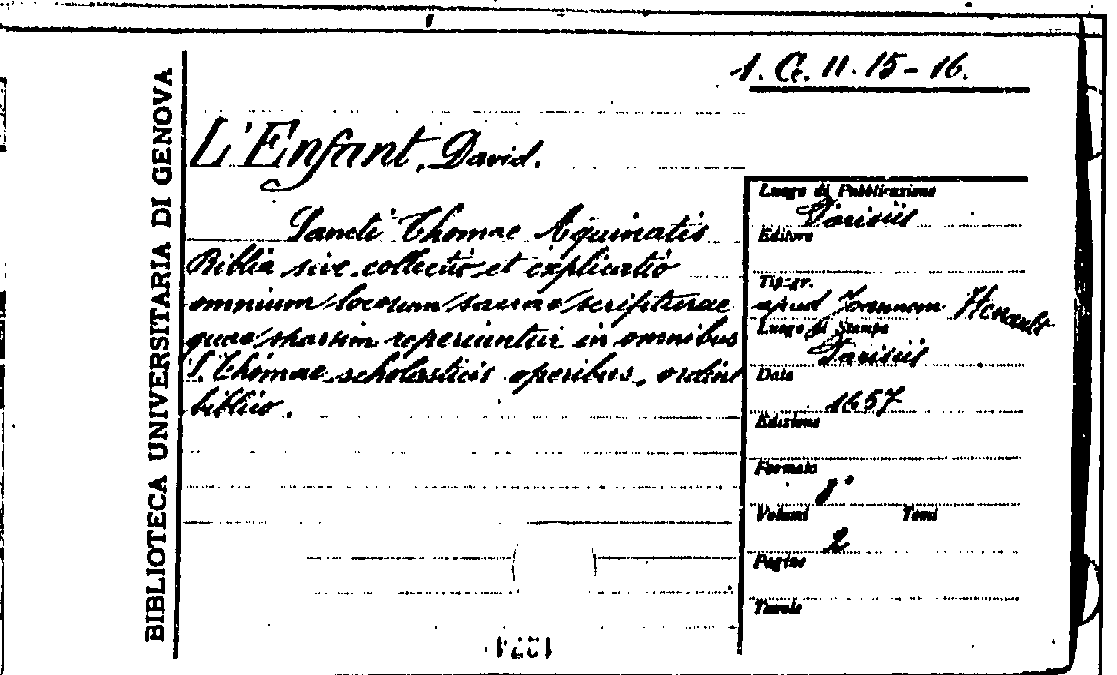 1. G. II. 15-16.
BIBLIOTECA UNIVERSITARIA DI GENOVA
L'Enfant, David.
Sancti Thomae Aquinatis
Biblia sive collectio et explicatio
omnium locorum sacrae scripturae
quae sparsim reperiuntur in omnibus
S. Thomae scholasticis operibus, ordine
biblico.
Luogo di Pubblicazione
Parisiis
Editore
Tipogr.
apud Joannem Henault
Luogo di Stampa
Parisiis
Data
1657
Edizione
Formato
8°
Volumi Tomi
2
Pagine
Tavole